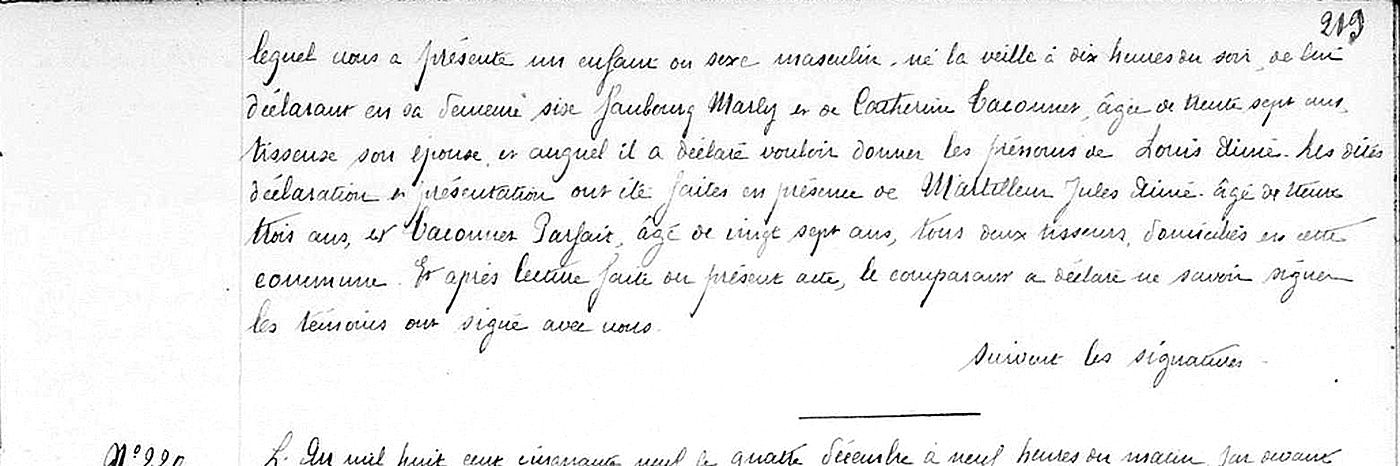 219
lequel nous a présenté un enfant du sexe masculin, né la veille à dix heures du soir, de lui
déclarant en sa demeure sise faubourg Marly et de Catherine Taconnet, âgée de trente sept ans,
tisseuse son épouse, et auquel il a déclaré vouloir donner les prénoms de Louis Aimé. Les dites
déclaration et présentation ont été faites en présence de Jules Aimé âgé de trente
trois ans, et Taconnet Parfait, âgé de vingt sept ans, tous deux tisseurs, domiciliés en cette
commune. Et après lecture faite du présent acte, le comparant a déclaré ne savoir signer
les témoins ont signé avec nous.
Suivent les signatures
N° 220 L'An mil huit cent cinquante neuf le quatre décembre à neuf heures du matin par devant